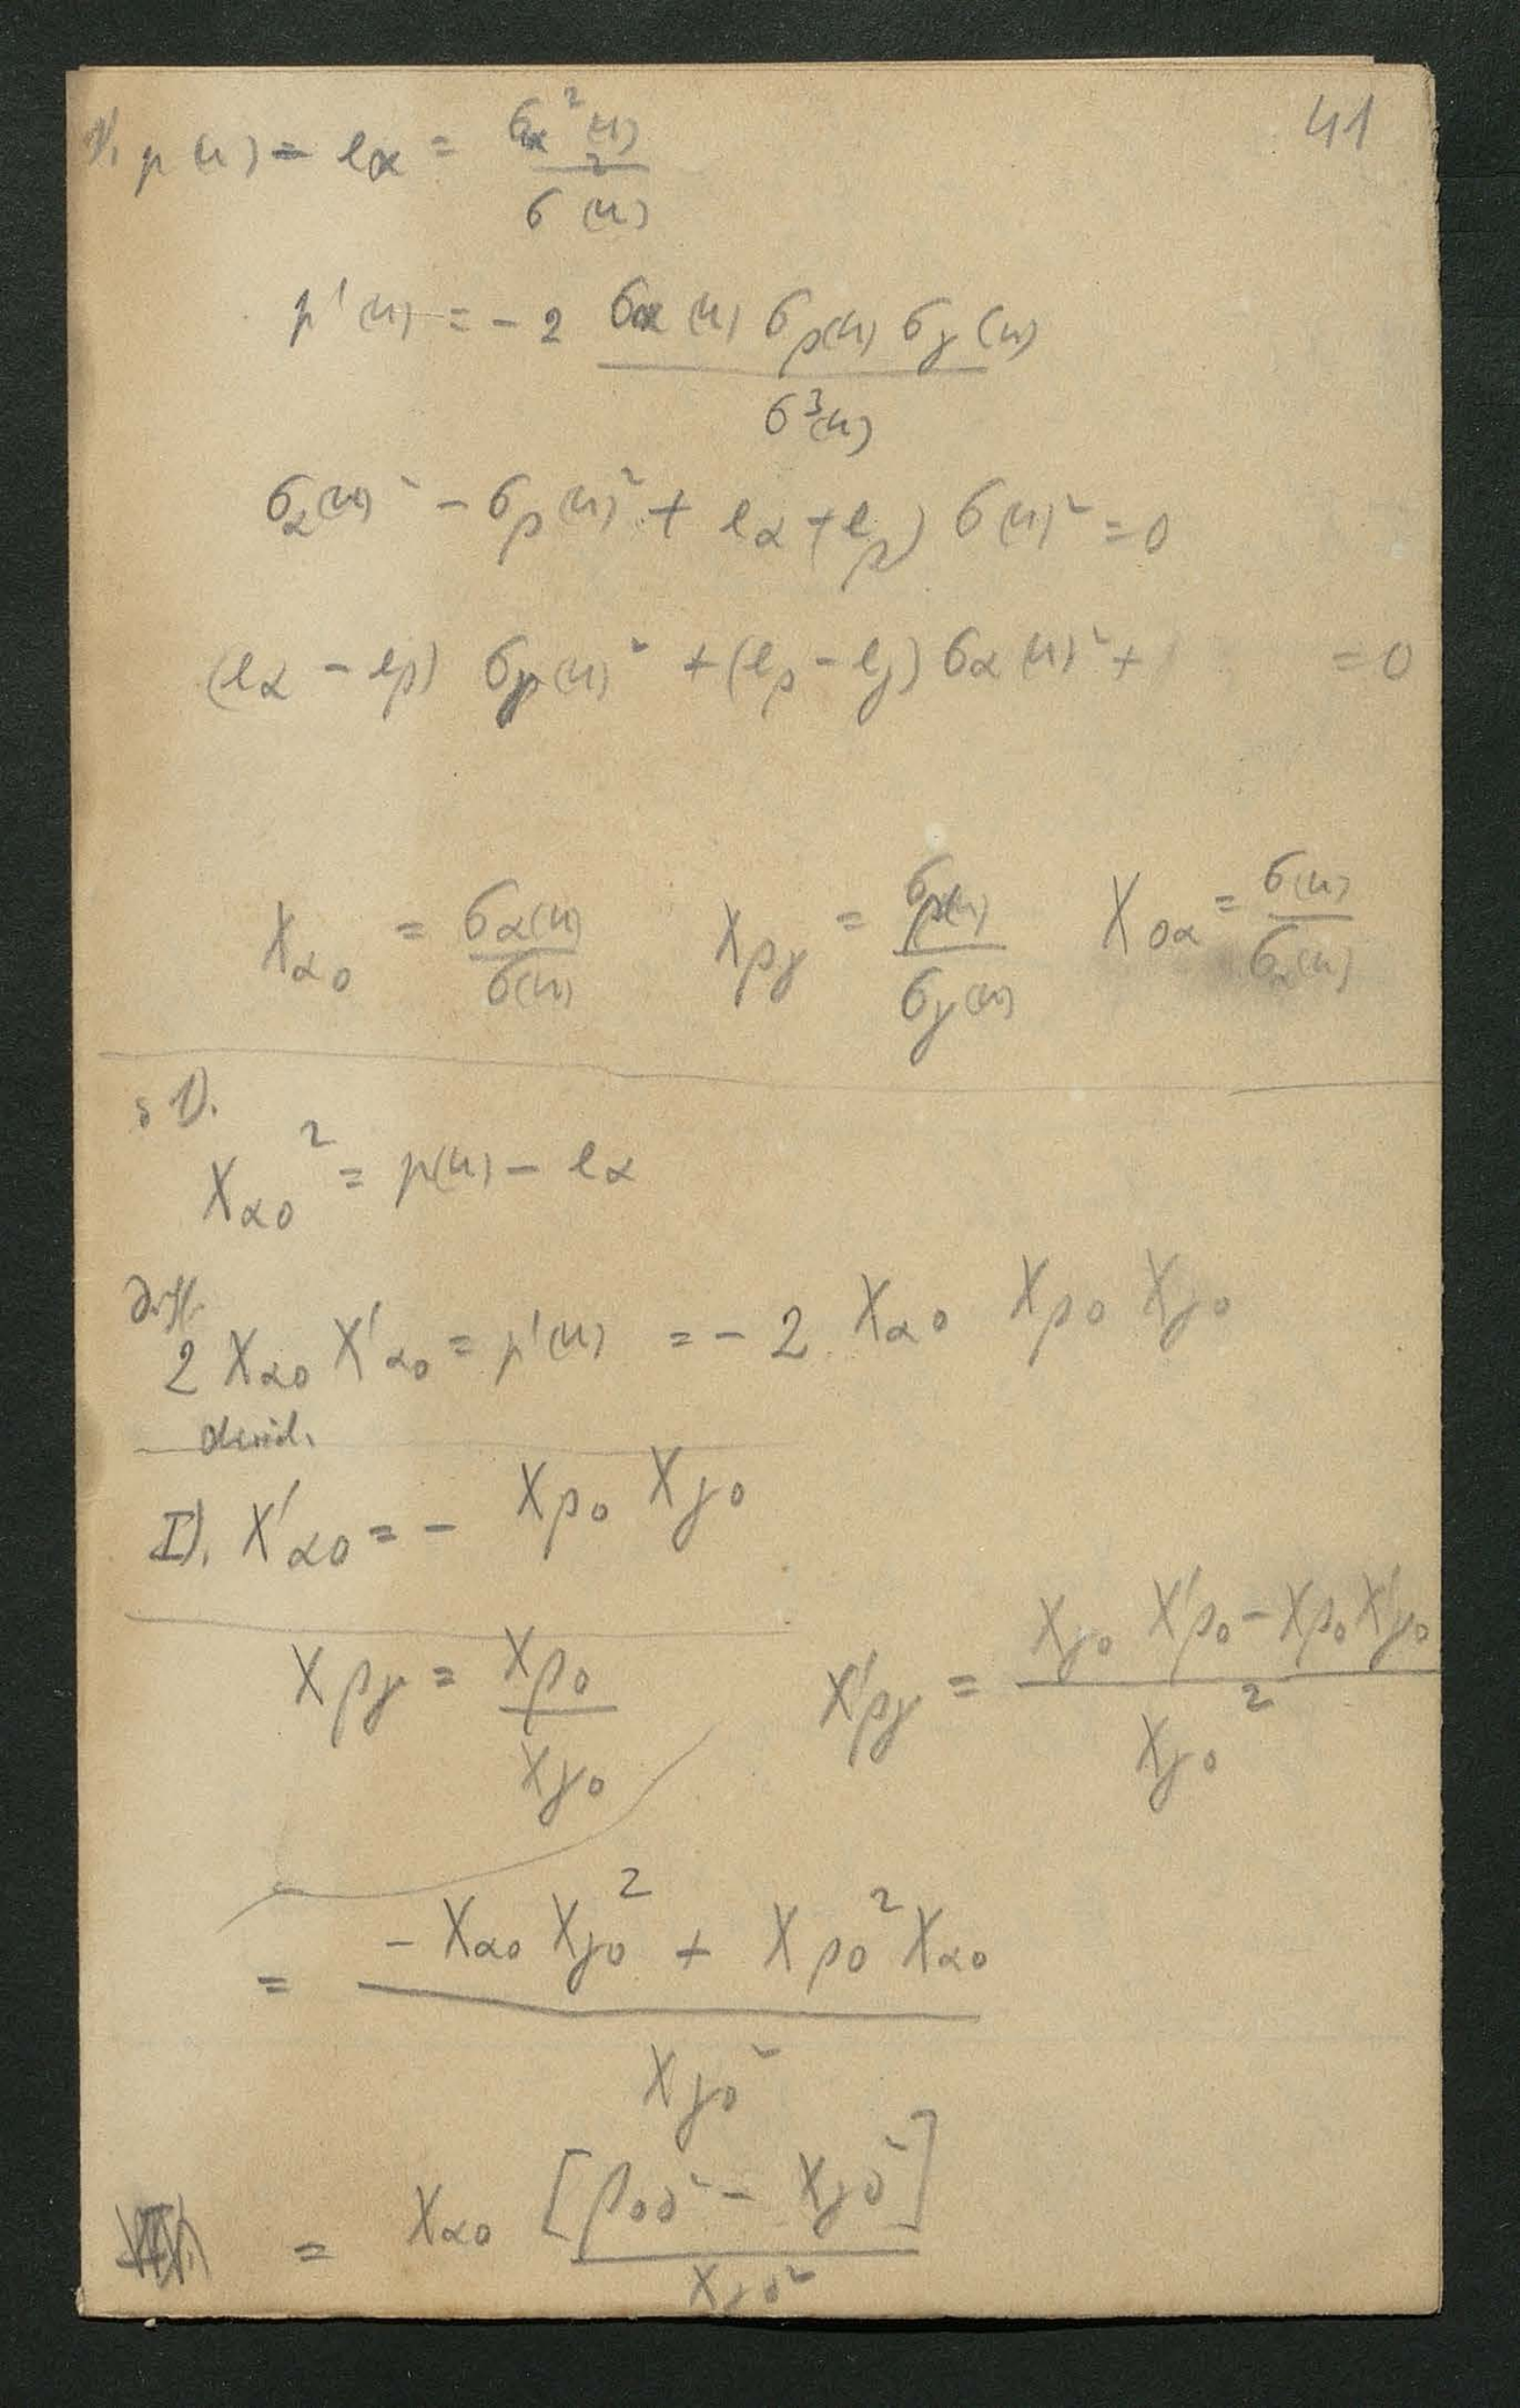 41
1). p(u) - eα = σα²(u) / σ²(u)
p'(u) = - 2 σα(u) σβ(u) σγ(u) / σ³(u)
σα(u)² - σβ(u)² + eα + eβ) σ(u)² = 0
(eα - eβ) σγ(u)² + (eβ - eγ) σα(u)² + = 0
Xα0 = σα(u) / σ(u) Xβγ = σβ(u) / σγ(u) X0α = σ(u) / σα(u)
1).
Xα0² = p(u) - eα
Diff.
2 Xα0 X'α0 = p'(u) = - 2 Xα0 Xβ0 Xγ0
divid.
I). X'α0 = - Xβ0 Xγ0
Xβγ = Xβ0 / Xγ0 X'βγ = Xγ0 X'β0 - Xβ0 X'γ0 / Xγ0²
= - Xα0 Xγ0² + Xβ0² Xα0 / Xγ0²
= Xα0 [β00² - Xγ0²] / Xγ0²